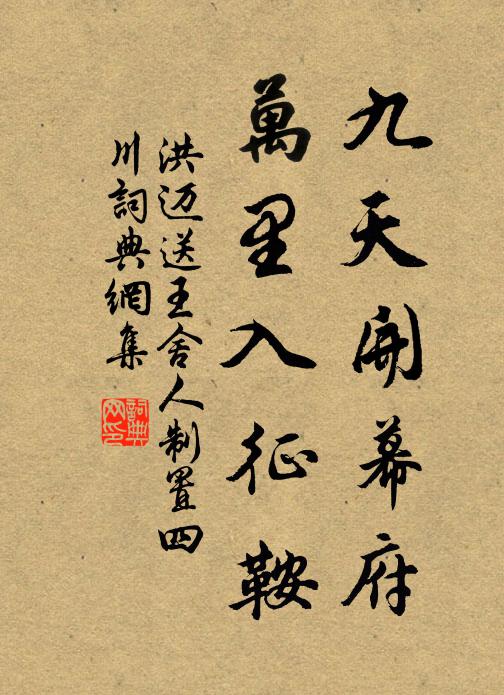 九天開幕府
萬里入征鞍
洪迈送王舍人制置四
川詞典網集
詞典
网印